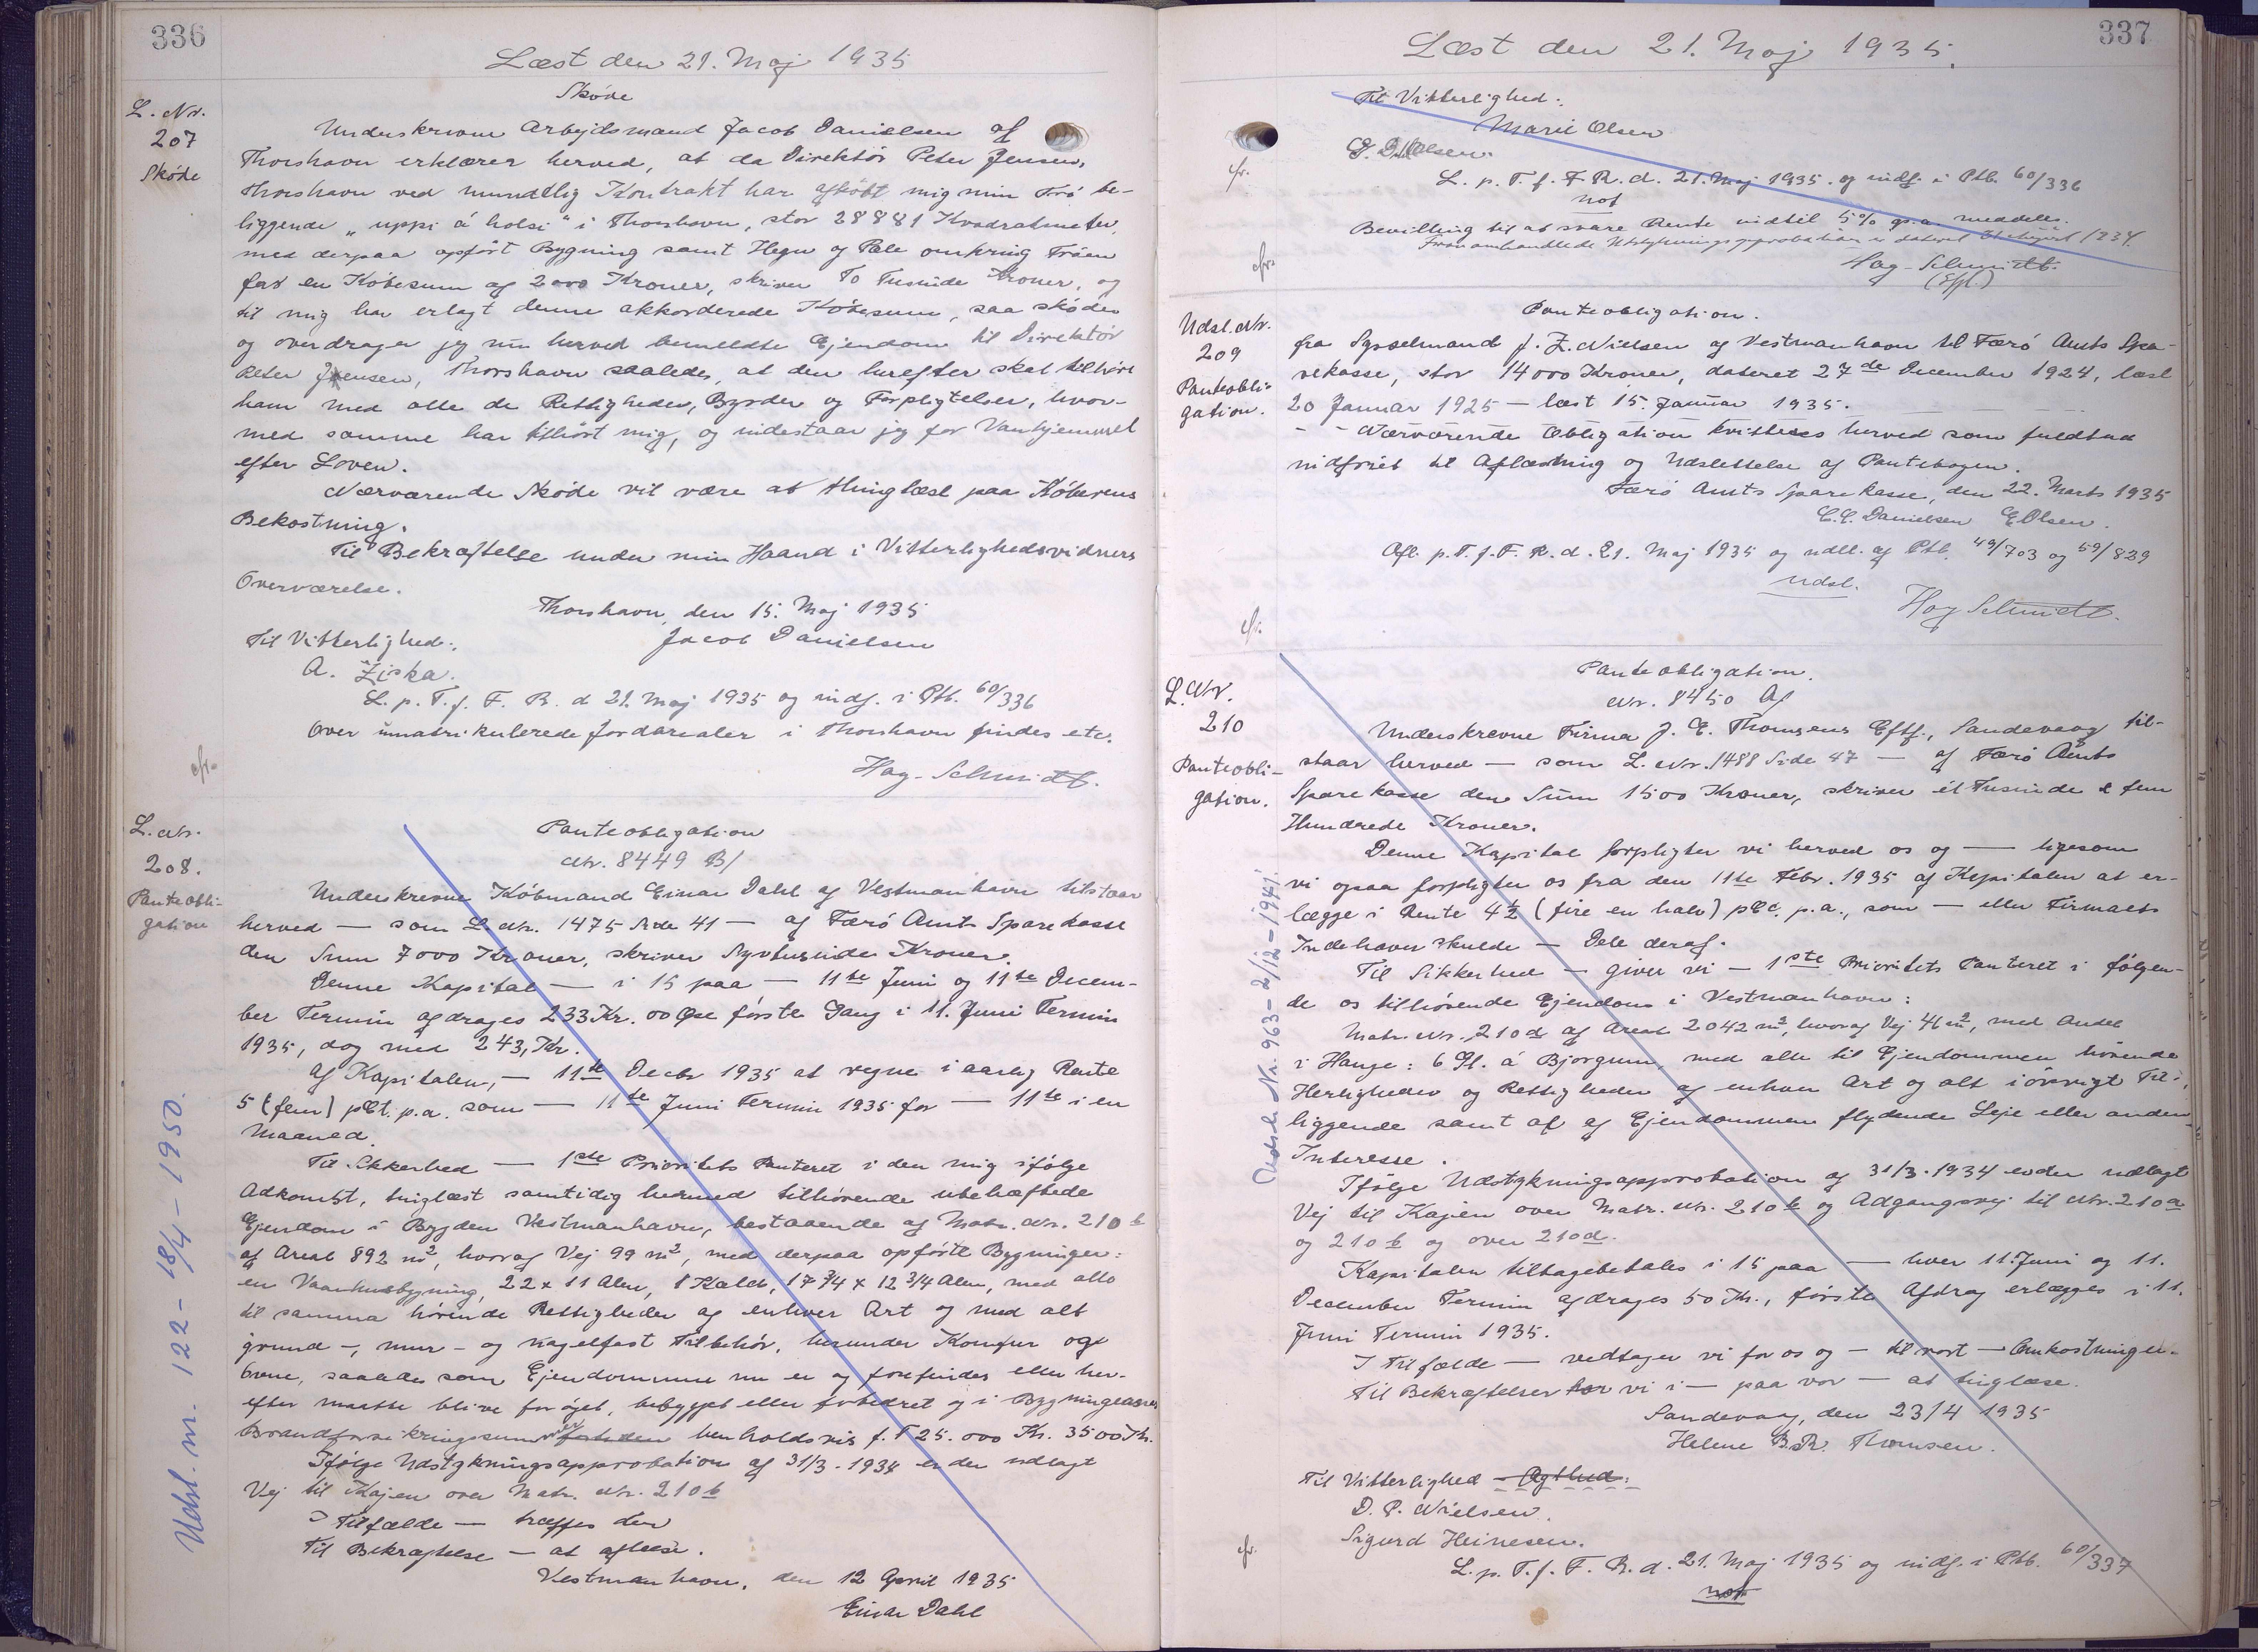 336
Læst den 21. Maj 1935
Skøde
L. Nr.
207
Skøde
Underskrevne Arbejdsmand Jacob Danielsen af
Thorshavn erklærer herved, at da Direktør Peter Jensen,
Thorshavn ved mundtlig Kontrakt har afkøbt mig min Trø be-
liggende „uppi á holsi" i Thorshavn, stor 28881 Kvadratmeter,
med derpaa opført Bygning samt Hegn og Pæle omkring Trøen
for en Købesum af 2000 Kroner, skriver To Tusinde Kroner, og
til mig har erlagt denne akkorderede Købesum, saa skøder
og overdrager jeg nu herved bemeldte Ejendom til Direktør
Peter Jensen, Thorshavn saaledes, at den herefter skal tilhøre
ham med alle de Rettigheder, Byrder og Forpligtelser, hvor-
med samme har tilhørt mig, og indestaar jeg for Vanhjemmel
efter Loven.
Nærværende Skøde vil være at thinglæst paa Køberens
Bekostning.
Til Bekræftelse under min Haand i Vitterlighedsvidners
Overværelse.
Thorshavn, den 15. Maj 1935
Til Vitterlighed:
Jacob Danielsen
A. Ziska.
L. p. T. f. F. R. d 21. Maj 1935 og indf. i Ptb. 60/336
Over umatrikulerede Jordarealer i Thorshavn findes etc.
cfr.
Hag-Schmidt.
L. Nr.
208.
Panteobli-
gation
Panteobligation
Nr. 8449 B/
Underskrevne Købmand Einar Dahl af Vestmanhavn tilstaar
herved — som L. Nr. 1475 Side 41 — af Færø Amts Sparekasse
den Sum 7000 Kroner, skriver Syvtusinde Kroner.
Denne Kapital — i 15 paa — 11te Juni og 11te Decem-
ber Termin afdrages 233 Kr. 00 Øre første Gang i 11. Juni Termin
1935, dog med 243, Kr.
Af Kapitalen, — 11te Decbr 1935 at regne i aarlig Rente
5 (fem) pCt. p.a. som — 11te Juni Termin 1935 for — 11te i en
Maaned.
Til Sikkerhed — 1ste Prioritets Panteret i den mig ifølge
Adkomst, tinglæst samtidig hermed tilhørende ubehæftede
Ejendom i Bygden Vestmanhavn, bestaaende af Matr. Nr. 210 b
af Areal 892 m², hvoraf Vej 99 m², med derpaa opførte Bygninger:
en Vaanhusbygning, 22 x 11 Alen, 1 Kæld, 17 3/4 x 12 3/4 Alen, med alle
til samme hørende Rettigheder af enhver Art og med alt
grund-, mur- og nagelfast Tilbehør, herunder Komfur og
Ovne, saaledes som Ejendommene nu er og forefindes eller her-
efter maatte blive forøjet, bebygget eller forbedret og i Bygningernes
Brandforsikringssummer henholdsvis f. T 25.000 Kr. 3500 Kr.
Ifølge Udstykningsapprobation af 31/3. 1934 er der udlagt
Vej til Kajen over Matr. Nr. 210 b
I Tilfælde — træffes der
Til Bekræftelse — at aflæse.
Vestmanhavn, den 12 April 1935
Einar Dahl
Udsl. nr. 122 - 18/4 - 1950.
337
Læst den 21. Maj 1935.
Til Vitterlighed:
Marie Olsen
L. p. T. f. F. R. d. 21. Maj 1935. og indf. i Ptb. 60/336
not
cfr.
Bevilling til at svare Rente indtil 5% p.a. meddeles.
Hag-Schmidt.
cfr.
Udsl. Nr.
209
Panteobli-
gation.
Panteobligation.
fra Sysselmand J. Z. Nielsen af Vestmanhavn til Færø Amts Spa-
rekasse, stor 14000 Kroner, dateret 27de December 1924, læst
20 Januar 1925 — læst 15. Januar 1935.
Nærværende Obligation kvitteres herved som fuldtud
indfriet til Aflæsning og Udslettelse af Pantebogen.
Færø Amts Sparekasse, den 22. Marts 1935
C. C. Danielsen E Olsen.
Afl. p. T. f. F. R. d. 21. Maj 1935 og udsl. af Ptb. 49/703 og 59/829
udsl.
Hag Schmidt.
cfr.
L. Nr.
210
Panteobli-
gation.
Panteobligation.
Nr. 8450 A/
Underskrevne Firma J. E. Thomsens Eftf., Sandevaag til-
staar herved — som L. Nr. 1488 Side 47 — af Færø Amts
Sparekasse den Sum 1500 Kroner, skriver ét Tusinde & fem
Hundrede Kroner.
Denne Kapital forpligter vi herved os og — ligesom
vi ogsaa forpligter os fra den 11te Febr. 1935 af Kapitalen at er-
lægge i Rente 4½ (fire en halv) pCt. p.a., som — eller Firmaets
Indehaver skulde — Dele deraf.
Til Sikkerhed — giver vi — 1ste Prioritets Panteret i følgen-
de os tilhørende Ejendom i Vestmanhavn:
Matr. Nr. 210 d af Areal 2042 m², hvoraf Vej 41 m², med Andel
i Hauge: 6 Gl. á Bjørgum, med alle til Ejendommen hørende
Herligheder og Rettigheder af enhver Art og alt iøvrigt Til-
liggende samt af af Ejendommen flydende Leje eller anden
Interesse.
Ifølge Udstykningsapprobation af 31/3. 1934 er der udlagt
Vej til Kajen over Matr. Nr. 210 b og Adgangsvej til Nr. 210 a
og 210 b og over 210 d.
Kapitalen tilbagebetales i 15 paa — hver 11. Juni og 11.
December Termin afdrages 50 Kr., første Afdrag erlægges i 11.
Juni Termin 1935.
I Tilfælde — vedtager vi for os og — til vort — Omkostninger.
Til Bekræftelse har vi i — paa vor — at tinglæse.
Sandevaag, den 23/4 1935
Helene B. R. Thomsen.
Til Vitterlighed
D. P. Nielsen.
Sigurd Heinesen.
cfr.
L. p. T. f. F. R. d. 21. Maj 1935 og indf. i Ptb. 60/337
not
Udsl. Nr. 963 - 2/12 - 1941.